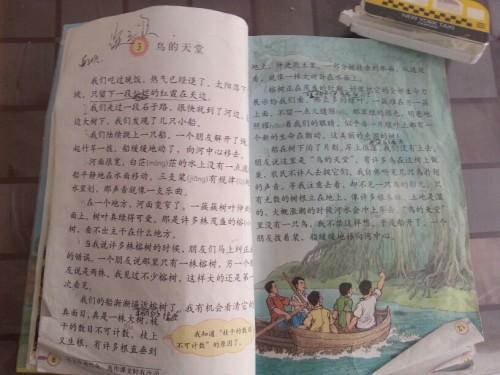 NEW YORK TAXI
3 鸟的天堂
我们吃过晚饭，热气已经退了。太阳落下了山
坡，只留下一段灿烂的红霞在天边。
我们走过一段石子路，很快就到了河边。在河
边大树下，我们发现了几只小船。
我们陆续跳上一只船。一个朋友解开了绳，拿
起竹竿一拨，船缓缓地动了，向河中心移去。
河面很宽，白茫(máng)茫的水上没有一点波浪。
船平静地在水面移动。三支桨(jiǎng)有规律(lǜ)地在
水里划，那声音就像一支乐曲。
在一个地方，河面变窄了。一簇簇树叶伸到水
面上。树叶真绿得可爱。那是许多株茂盛的榕小
树，看不出主干在什么地方。
当我说许多株榕树的时候，朋友们马上纠正我
的错误。一个朋友说那里只有一株榕树，另一个朋
友说是两株。我见过不少榕树，这样大的还是第一
次看见。
我们的船渐渐逼近榕树了。我有机会看清它的
真面目，真是一株大树，枝
干的数目不可计数。枝上
又生根，有许多根直垂到
我知道“枝干的数目
不可计数”的原因了。
8
地上，伸进泥土里。一部分树枝垂到水面，从远处
看，就像一株大树卧在水面上。
榕树正在茂盛的时期，好像把它的全部生命力
展示给我们看。那么多的绿叶，一簇堆在另一簇
上面，不留一点儿缝隙。那翠绿的颜色，明亮地
照耀着我们的眼睛，似乎每一片绿叶上都有一
个新的生命在颤动。这美丽的南国的树！
船在树下泊了片刻。岸上很湿，我们没有上去。
朋友说这里是“鸟的天堂”，有许多鸟在这树上做
巢，农民不许人去捉它们。我仿佛听见几只鸟扑翅
的声音，等我注意去看，却不见一只鸟的影儿。只
有无数的树根立在地上，像许多根木桩。土地是湿
的，大概涨潮的时候河水会冲上岸去。“鸟的天堂”
里没有一只鸟，我不禁这样想。于是船开了，一个
朋友拨着桨，船缓缓地移向河中心。